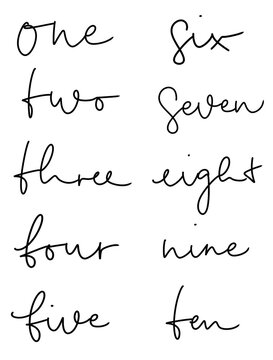 one
two
three
four
five
six
seven
eight
nine
ten